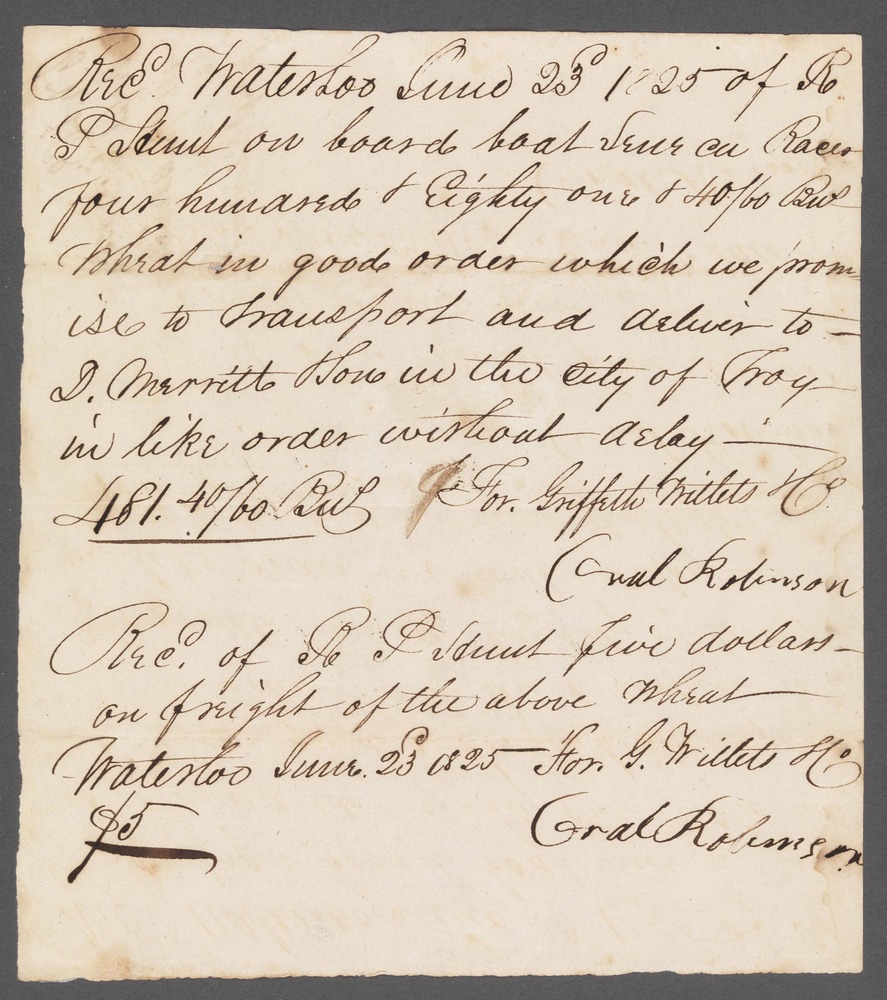 Rec.d Waterloo June 23d 1825 of R
P Hunt on board boat Seneca Racer
four hundred & Eighty one & 40/60 Bus
Wheat in good order which we prom=
ise to transport and deliver to -
D. Merritt & Son in the city of Troy
in like order without delay -
481. 40/60 Bus For. Griffeth Willets & Co.
Oral Robinson
Rec.d of R P Hunt five dollars -
on freight of the above Wheat
Waterloo June. 23d 1825 - For. G. Willets & Co
$5 Oral Robinson